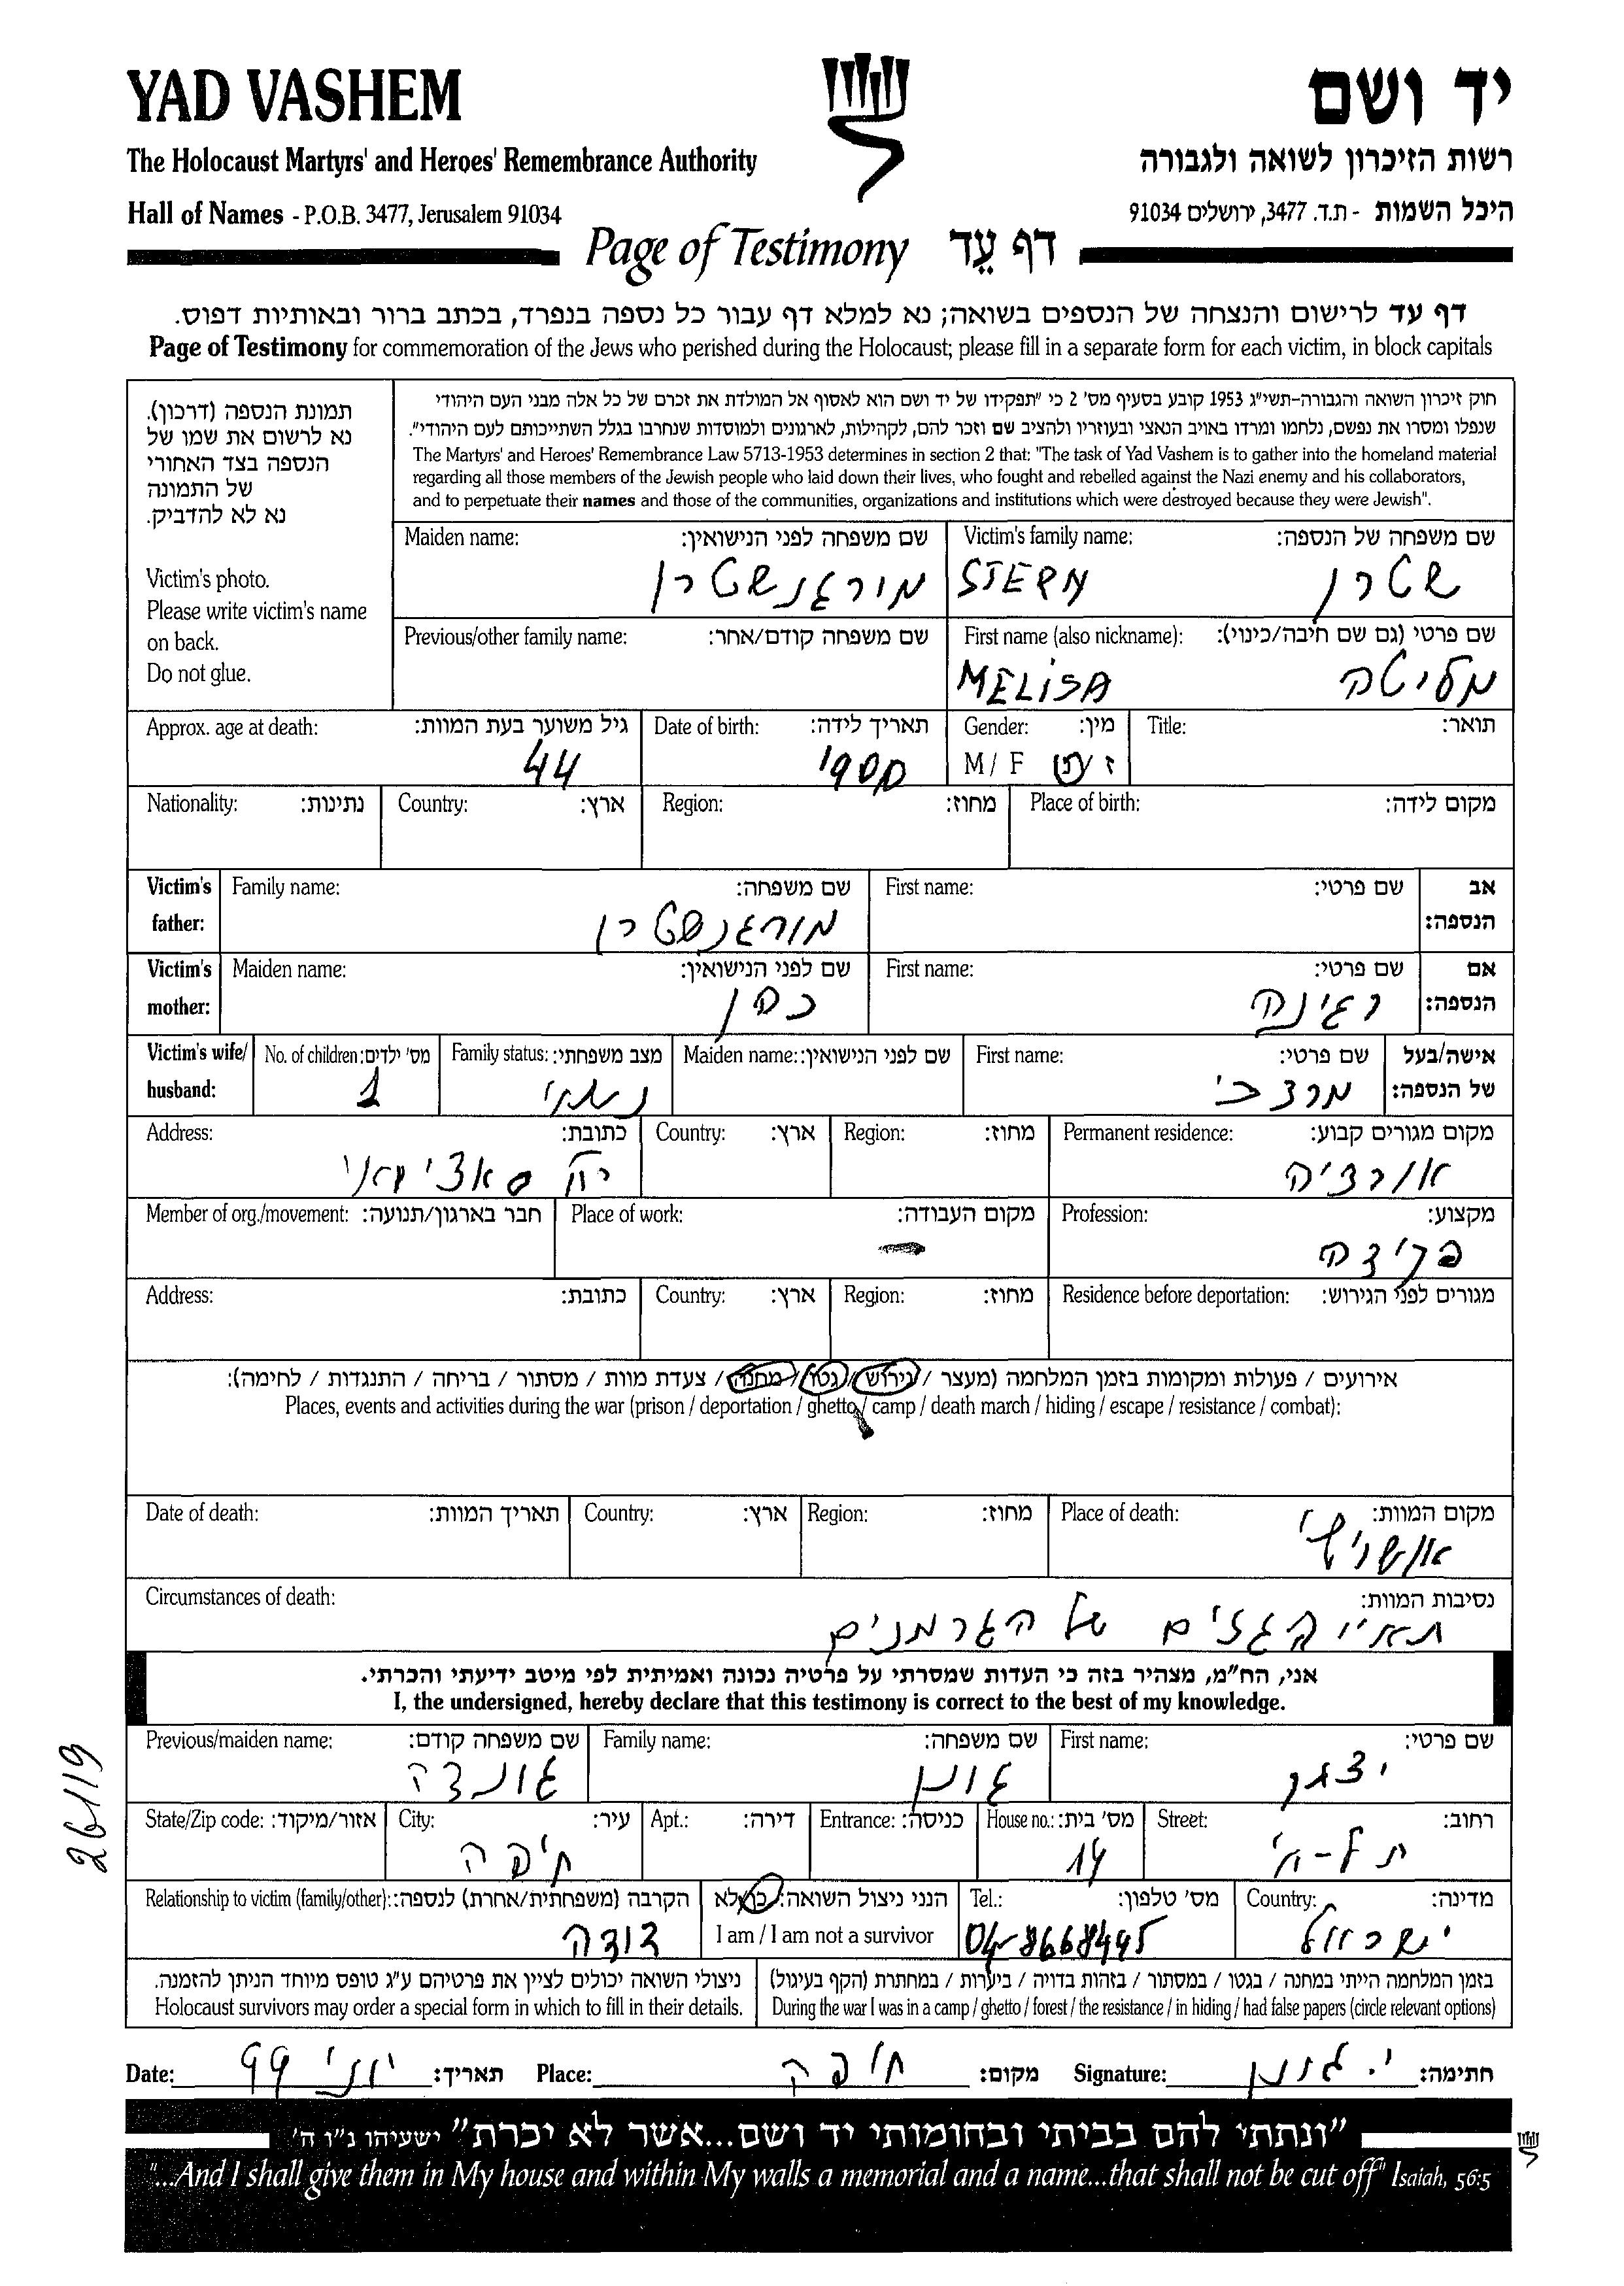 YAD VASHEM
יד ושם
The Holocaust Martyrs' and Heroes' Remembrance Authority
רשות הזיכרון לשואה ולגבורה
Hall of Names - P.O.B. 3477, Jerusalem 91034
היכל השמות - ת.ד. 3477, ירושלים 91034
Page of Testimony דף עֵד
דף עד לרישום והנצחה של הנספים בשואה; נא למלא דף עבור כל נספה בנפרד, בכתב ברור ובאותיות דפוס.
Page of Testimony for commemoration of the Jews who perished during the Holocaust; please fill in a separate form for each victim, in block capitals
תמונת הנספה (דרכון).
נא לרשום את שמו של
הנספה בצד האחורי
של התמונה
נא לא להדביק.
Victim's photo.
Please write victim's name
on back.
Do not glue.
חוק זיכרון השואה והגבורה-תשי"ג 1953 קובע בסעיף מס' 2 כי "תפקידו של יד ושם הוא לאסוף אל המולדת את זכרם של כל אלה מבני העם היהודי
שנפלו ומסרו את נפשם, נלחמו ומרדו באויב הנאצי ובעוזריו ולהציב שם וזכר להם, לקהילות, לארגונים ולמוסדות שנחרבו בגלל השתייכותם לעם היהודי".
The Martyrs' and Heroes' Remembrance Law 5713-1953 determines in section 2 that: "The task of Yad Vashem is to gather into the homeland material
regarding all those members of the Jewish people who laid down their lives, who fought and rebelled against the Nazi enemy and his collaborators,
and to perpetuate their names and those of the communities, organizations and institutions which were destroyed because they were Jewish".
Maiden name: שם משפחה לפני הנישואין: Victim's family name: שם משפחה של הנספה:
מורגנשטרן STERN שטרן
Previous/other family name: שם משפחה קודם/אחר: First name (also nickname): שם פרטי (גם שם חיבה/כינוי):
MELISA מליטה
Approx. age at death: גיל משוער בעת המוות: Date of birth: תאריך לידה: Gender: מין: Title: תואר:
44 1900 M / F ז / נ
Nationality: נתינות: Country: ארץ: Region: מחוז: Place of birth: מקום לידה:
Victim's father: Family name: שם משפחה: First name: שם פרטי: אב הנספה:
מורגנשטרן
Victim's mother: Maiden name: שם לפני הנישואין: First name: שם פרטי: אם הנספה:
כהן רגינה
Victim's wife/ husband: No. of children: מס' ילדים: Family status: מצב משפחתי: Maiden name: שם לפני הנישואין: First name: שם פרטי: אישה/בעל של הנספה:
1 נשוי
Address: כתובת: Country: ארץ: Region: מחוז: Permanent residence: מקום מגורים קבוע:
אורדיה
Member of org./movement: חבר בארגון/תנועה: Place of work: מקום העבודה: Profession: מקצוע:
פקידה
Address: כתובת: Country: ארץ: Region: מחוז: Residence before deportation: מגורים לפני הגירוש:
אירועים / פעולות ומקומות בזמן המלחמה (מעצר / גירוש / גטו / מחנה / צעדת מוות / מסתור / בריחה / התנגדות / לחימה):
Places, events and activities during the war (prison / deportation / ghetto / camp / death march / hiding / escape / resistance / combat):
Date of death: תאריך המוות: Country: ארץ: Region: מחוז: Place of death: מקום המוות:
אושוויץ
Circumstances of death: נסיבות המוות:
תאי הגזים של הגרמנים
אני, הח"מ, מצהיר בזה כי העדות שמסרתי על פרטיה נכונה ואמיתית לפי מיטב ידיעתי והכרתי.
I, the undersigned, hereby declare that this testimony is correct to the best of my knowledge.
Previous/maiden name: שם משפחה קודם: Family name: שם משפחה: First name: שם פרטי:
גונדה גונן
State/Zip code: אזור/מיקוד: City: עיר: Apt.: דירה: Entrance: כניסה: House no.: מס' בית: Street: רחוב:
חיפה 14 תל-חי
Relationship to victim (family/other): הקרבה (משפחתית/אחרת) לנספה: הנני ניצול השואה: כן/לא Tel.: מס' טלפון: Country: מדינה:
דודה I am / I am not a survivor 04-8668445 ישראל
ניצולי השואה יכולים לציין את פרטיהם ע"ג טופס מיוחד הניתן להזמנה. בזמן המלחמה הייתי במחנה / בגטו / במסתור / בזהות בדויה / ביערות / במחתרת (הקף בעיגול)
Holocaust survivors may order a special form in which to fill in their details. During the war I was in a camp / ghetto / forest / the resistance / in hiding / had false papers (circle relevant options)
Date: יוני 99 תאריך: Place: חיפה מקום: Signature: י. גונן חתימה:
"ונתתי להם בביתי ובחומותי יד ושם...אשר לא יכרת" ישעיהו נ"ו ה'
"...And I shall give them in My house and within My walls a memorial and a name...that shall not be cut off" Isaiah, 56:5
26119